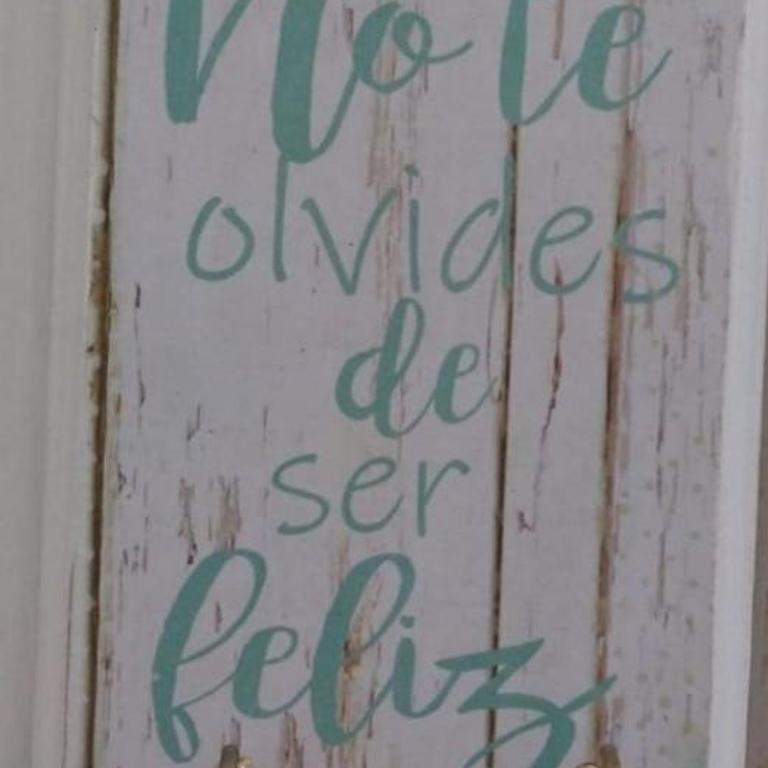 No te
olvides
de
ser
feliz